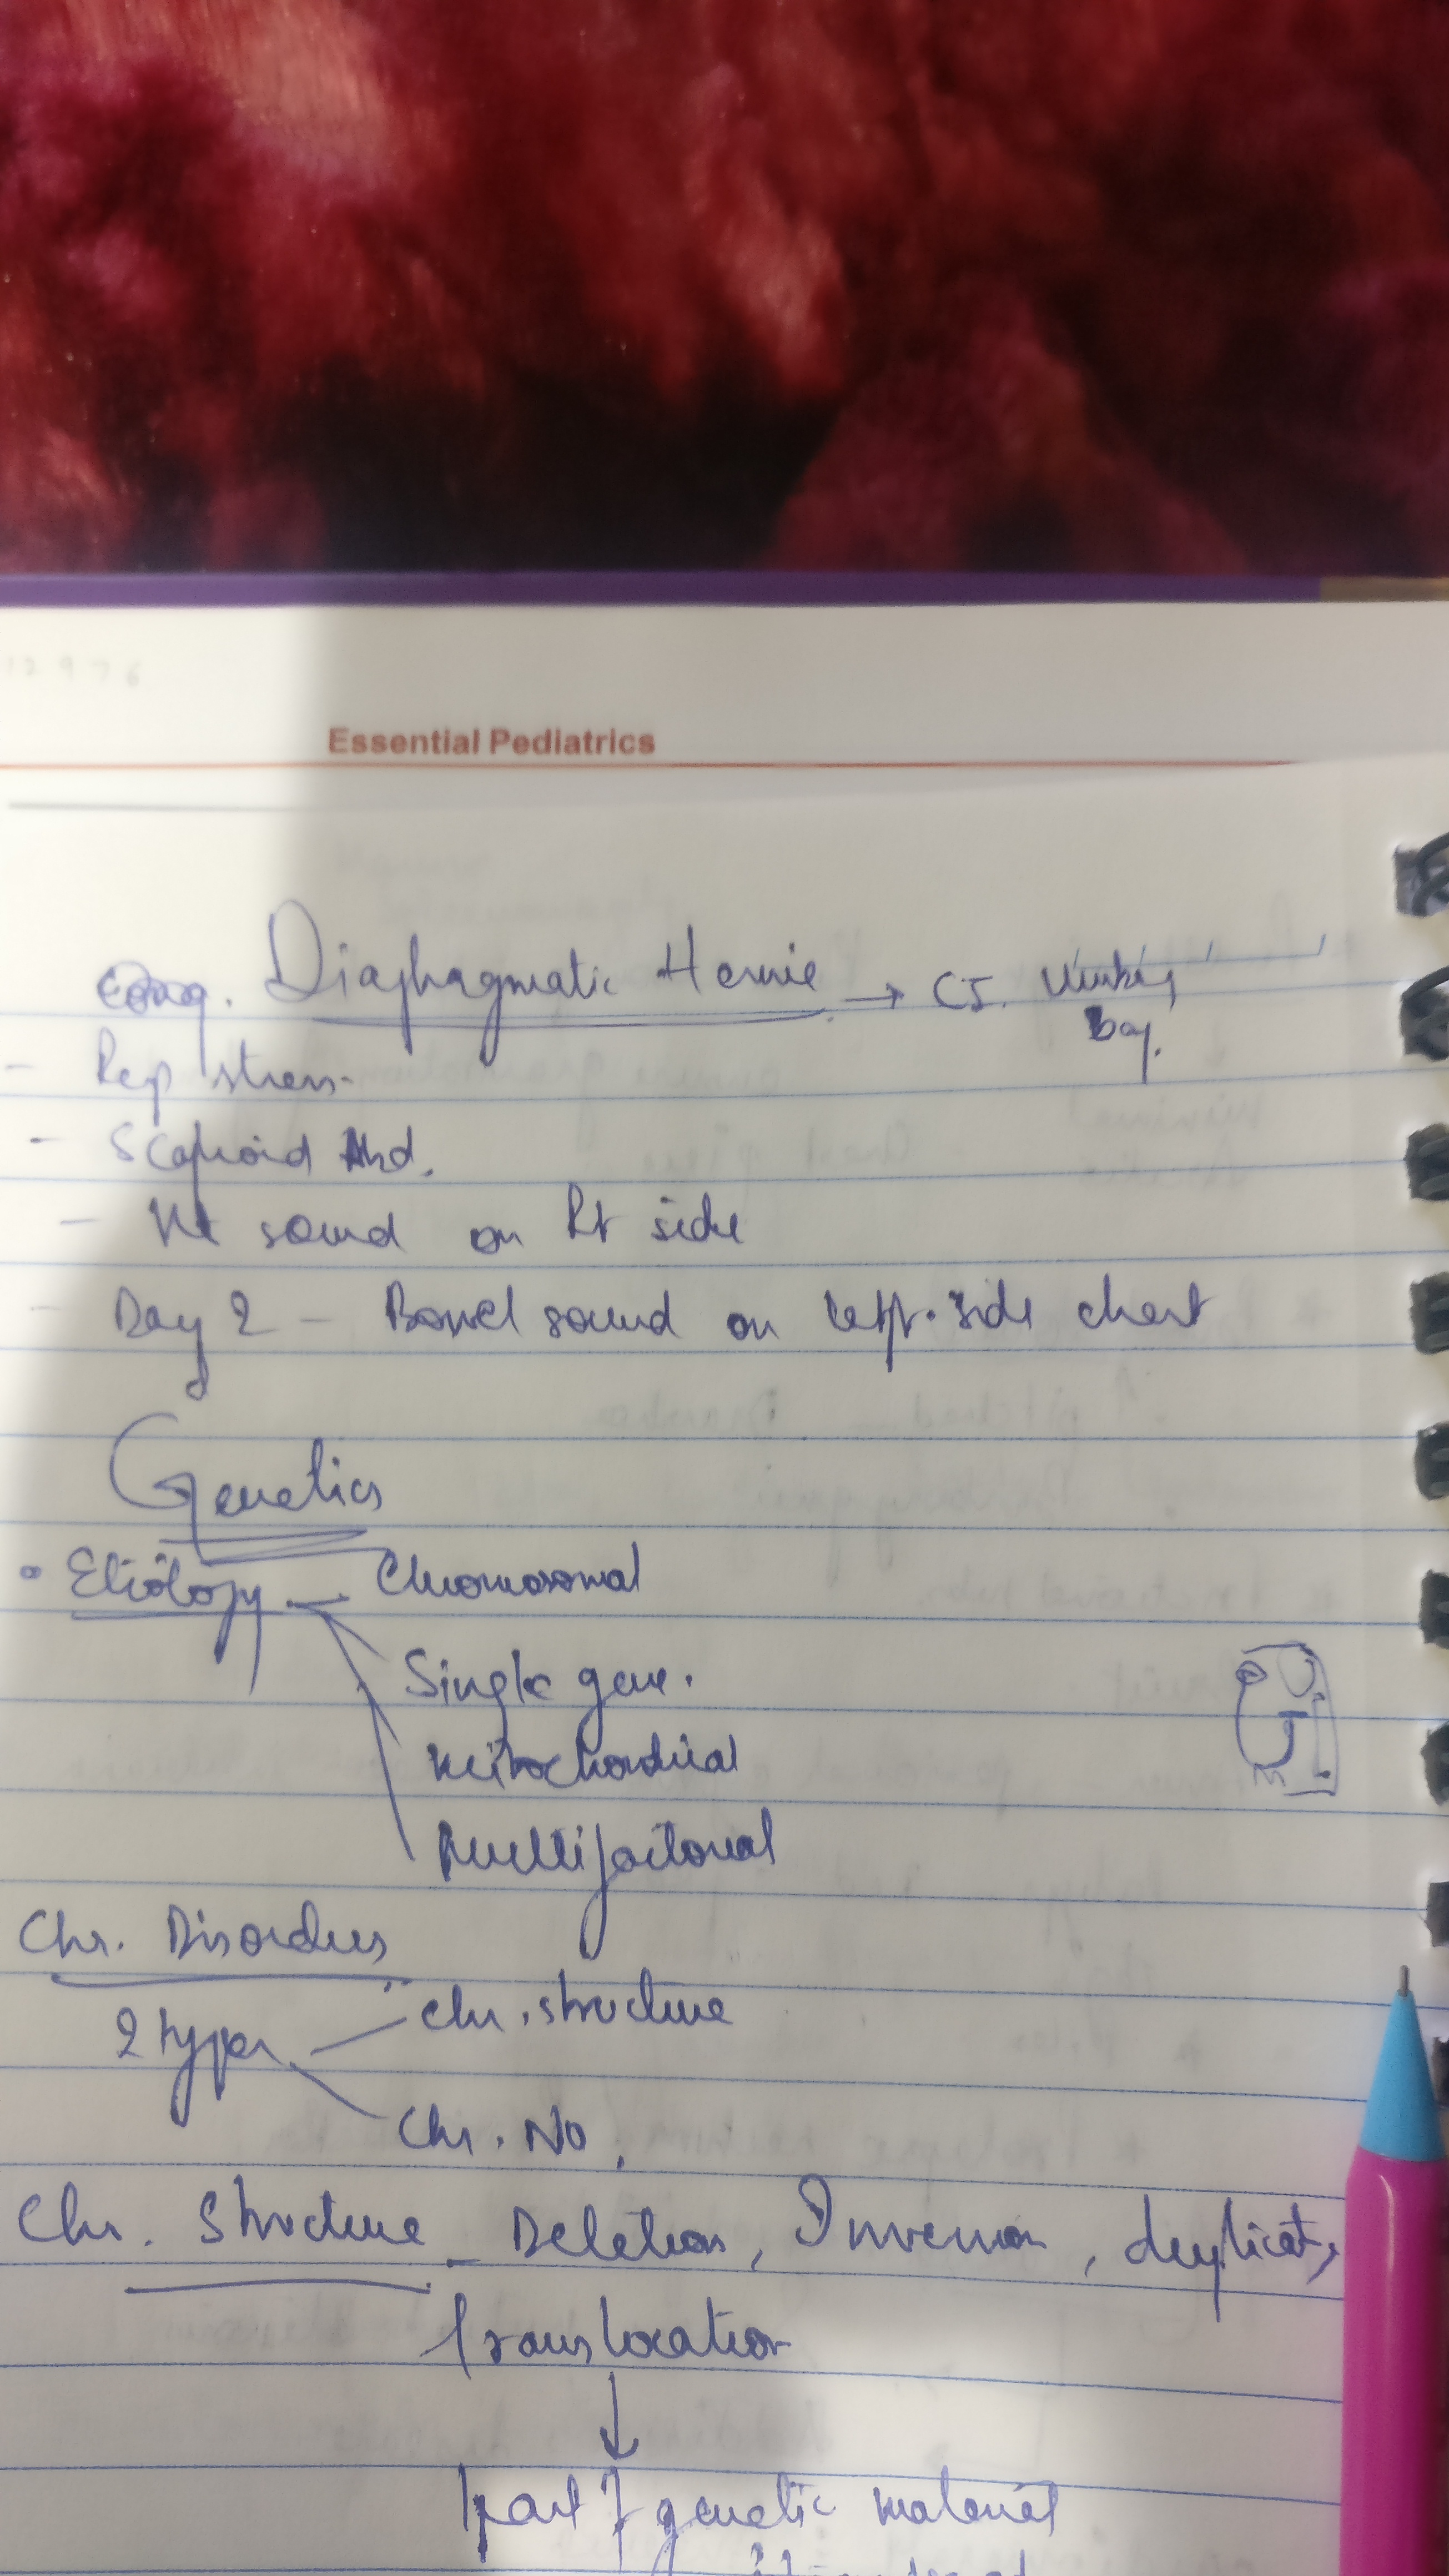 Essential Pediatrics
Cong. Diaphagmatic Hernie → CI.
Bag.
- Resp stress.
- Scaphoid Abd.
- Ht sound on Rt side
- Day 2 - Bowel sound on left side chest
Genetics
• Etiology - Chromosomal
Single gene.
Mitochondrial
Multifactorial
Chr. Disorders
2 types
Chr. structure
Chr. No.
Chr. Structure - Deletion, Inversion, duplicat,
translocation
↓
part of genetic material